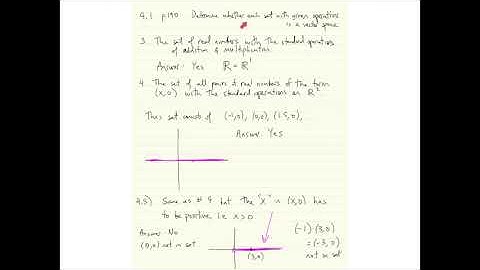 4.1 p190 Determine whether each set with given operations
is a vector space
3. The set of real numbers with the standard operations
of addition & multiplication
Answer: Yes ℝ = ℝ¹
4. The set of all pairs of real numbers of the form
(x,0) with the standard operations on ℝ²
This set consists of (-1,0), (0,0), (1.5,0),
Answer: Yes
4.5) Same as #4 but the "x" in (x,0) has
to be positive i.e x>0
Answer: No
(0,0) not in set
(3,0)
(-1)·(3,0)
= (-3, 0)
not in set